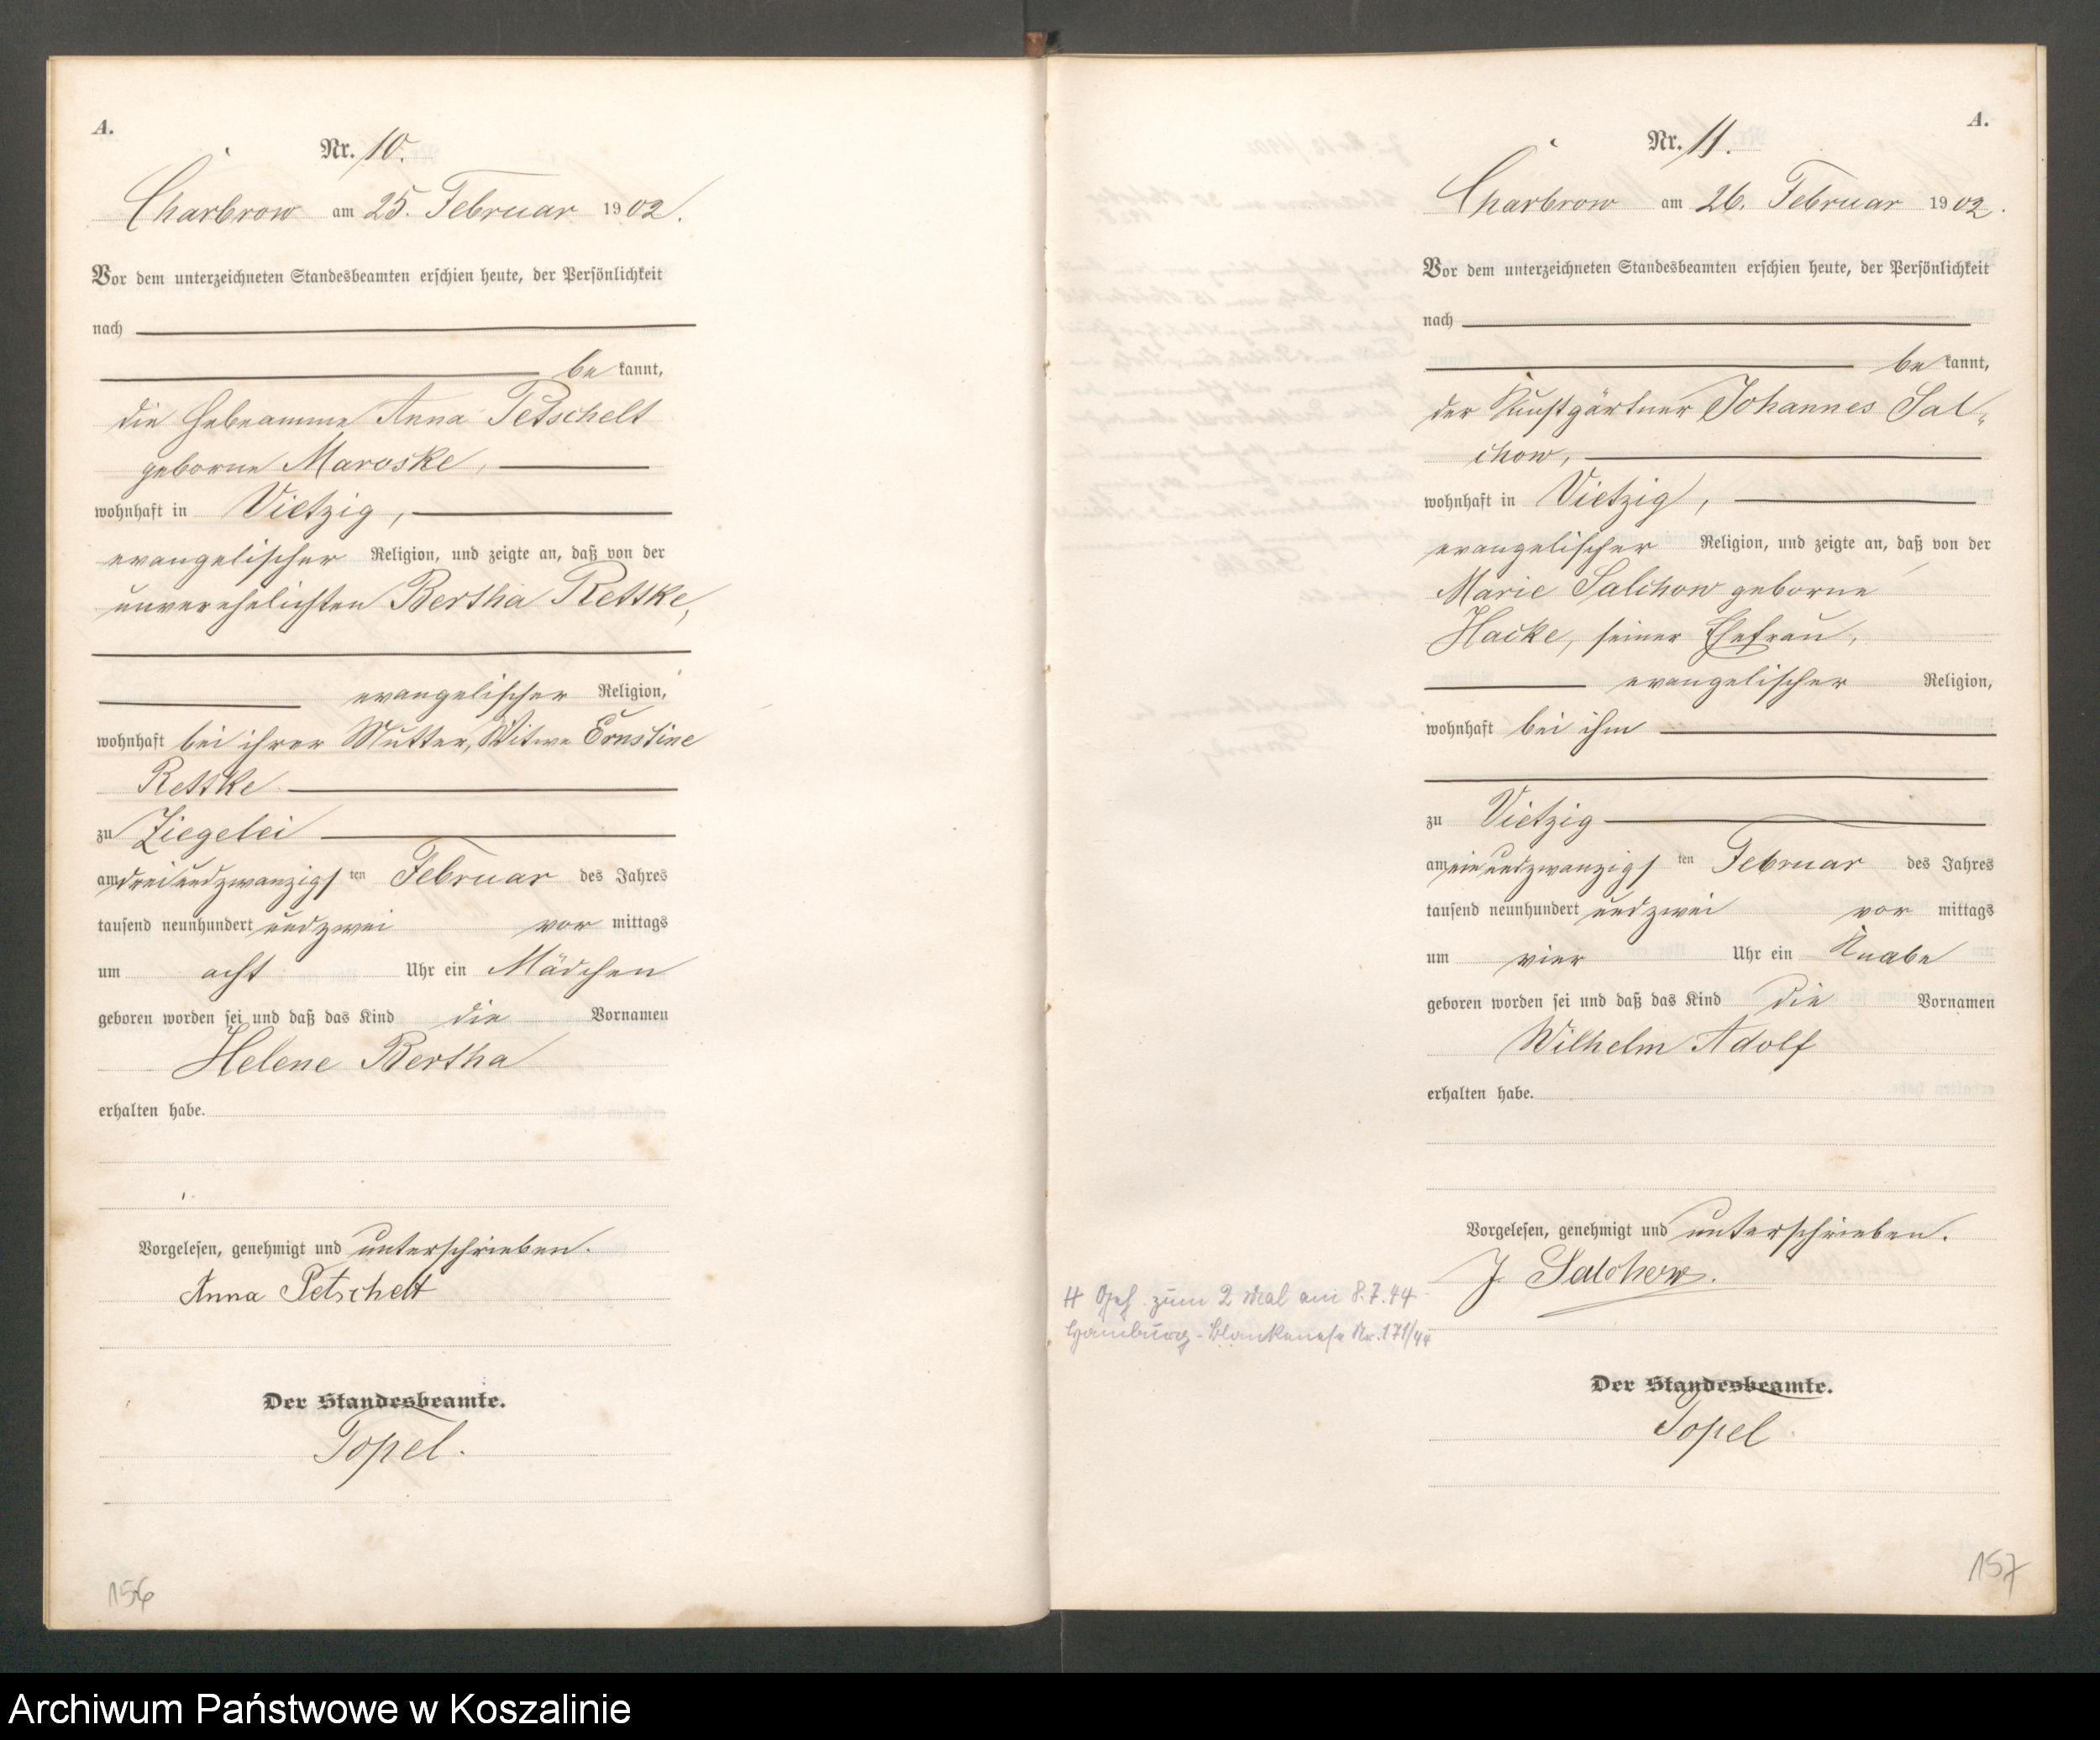 A.
Nr. 10.
Charbrow am 25. Februar 1902.
Vor dem unterzeichneten Standesbeamten erschien heute, der Persönlichkeit
nach
be kannt,
die Hebeamme Anna Petschelt
geborne Maroske,
wohnhaft in Vietzig,
evangelischer Religion, und zeigte an, daß von der
unverehelichten Bertha Rettke,
evangelischer Religion,
wohnhaft bei ihrer Mutter, Witwe Ernstine
Rettke
zu Ziegelei
am dreiundzwanzigsten Februar des Jahres
tausend neunhundert und zwei vor mittags
um acht Uhr ein Mädchen
geboren worden sei und daß das Kind die Vornamen
Helene Bertha
erhalten habe.
Vorgelesen, genehmigt und unterschrieben.
Anna Petschelt
Der Standesbeamte.
Topel.
156
A.
Nr. 11.
Charbrow am 26. Februar 1902.
Vor dem unterzeichneten Standesbeamten erschien heute, der Persönlichkeit
nach
be kannt,
der Kunstgärtner Johannes Sal-
chow,
wohnhaft in Vietzig,
evangelischer Religion, und zeigte an, daß von der
Marie Salchow geborne
Hacke, seiner Ehefrau,
evangelischer Religion,
wohnhaft bei ihm
zu Vietzig
am einundzwanzigsten Februar des Jahres
tausend neunhundert und zwei vor mittags
um vier Uhr ein Knabe
geboren worden sei und daß das Kind die Vornamen
Wilhelm Adolf
erhalten habe.
Vorgelesen, genehmigt und unterschrieben.
J. Salchow.
zum 2. Mal am 8.7.44
Hamburg-Blankenese Nr. 171/44
Der Standesbeamte.
Topel
157
Archiwum Państwowe w Koszalinie